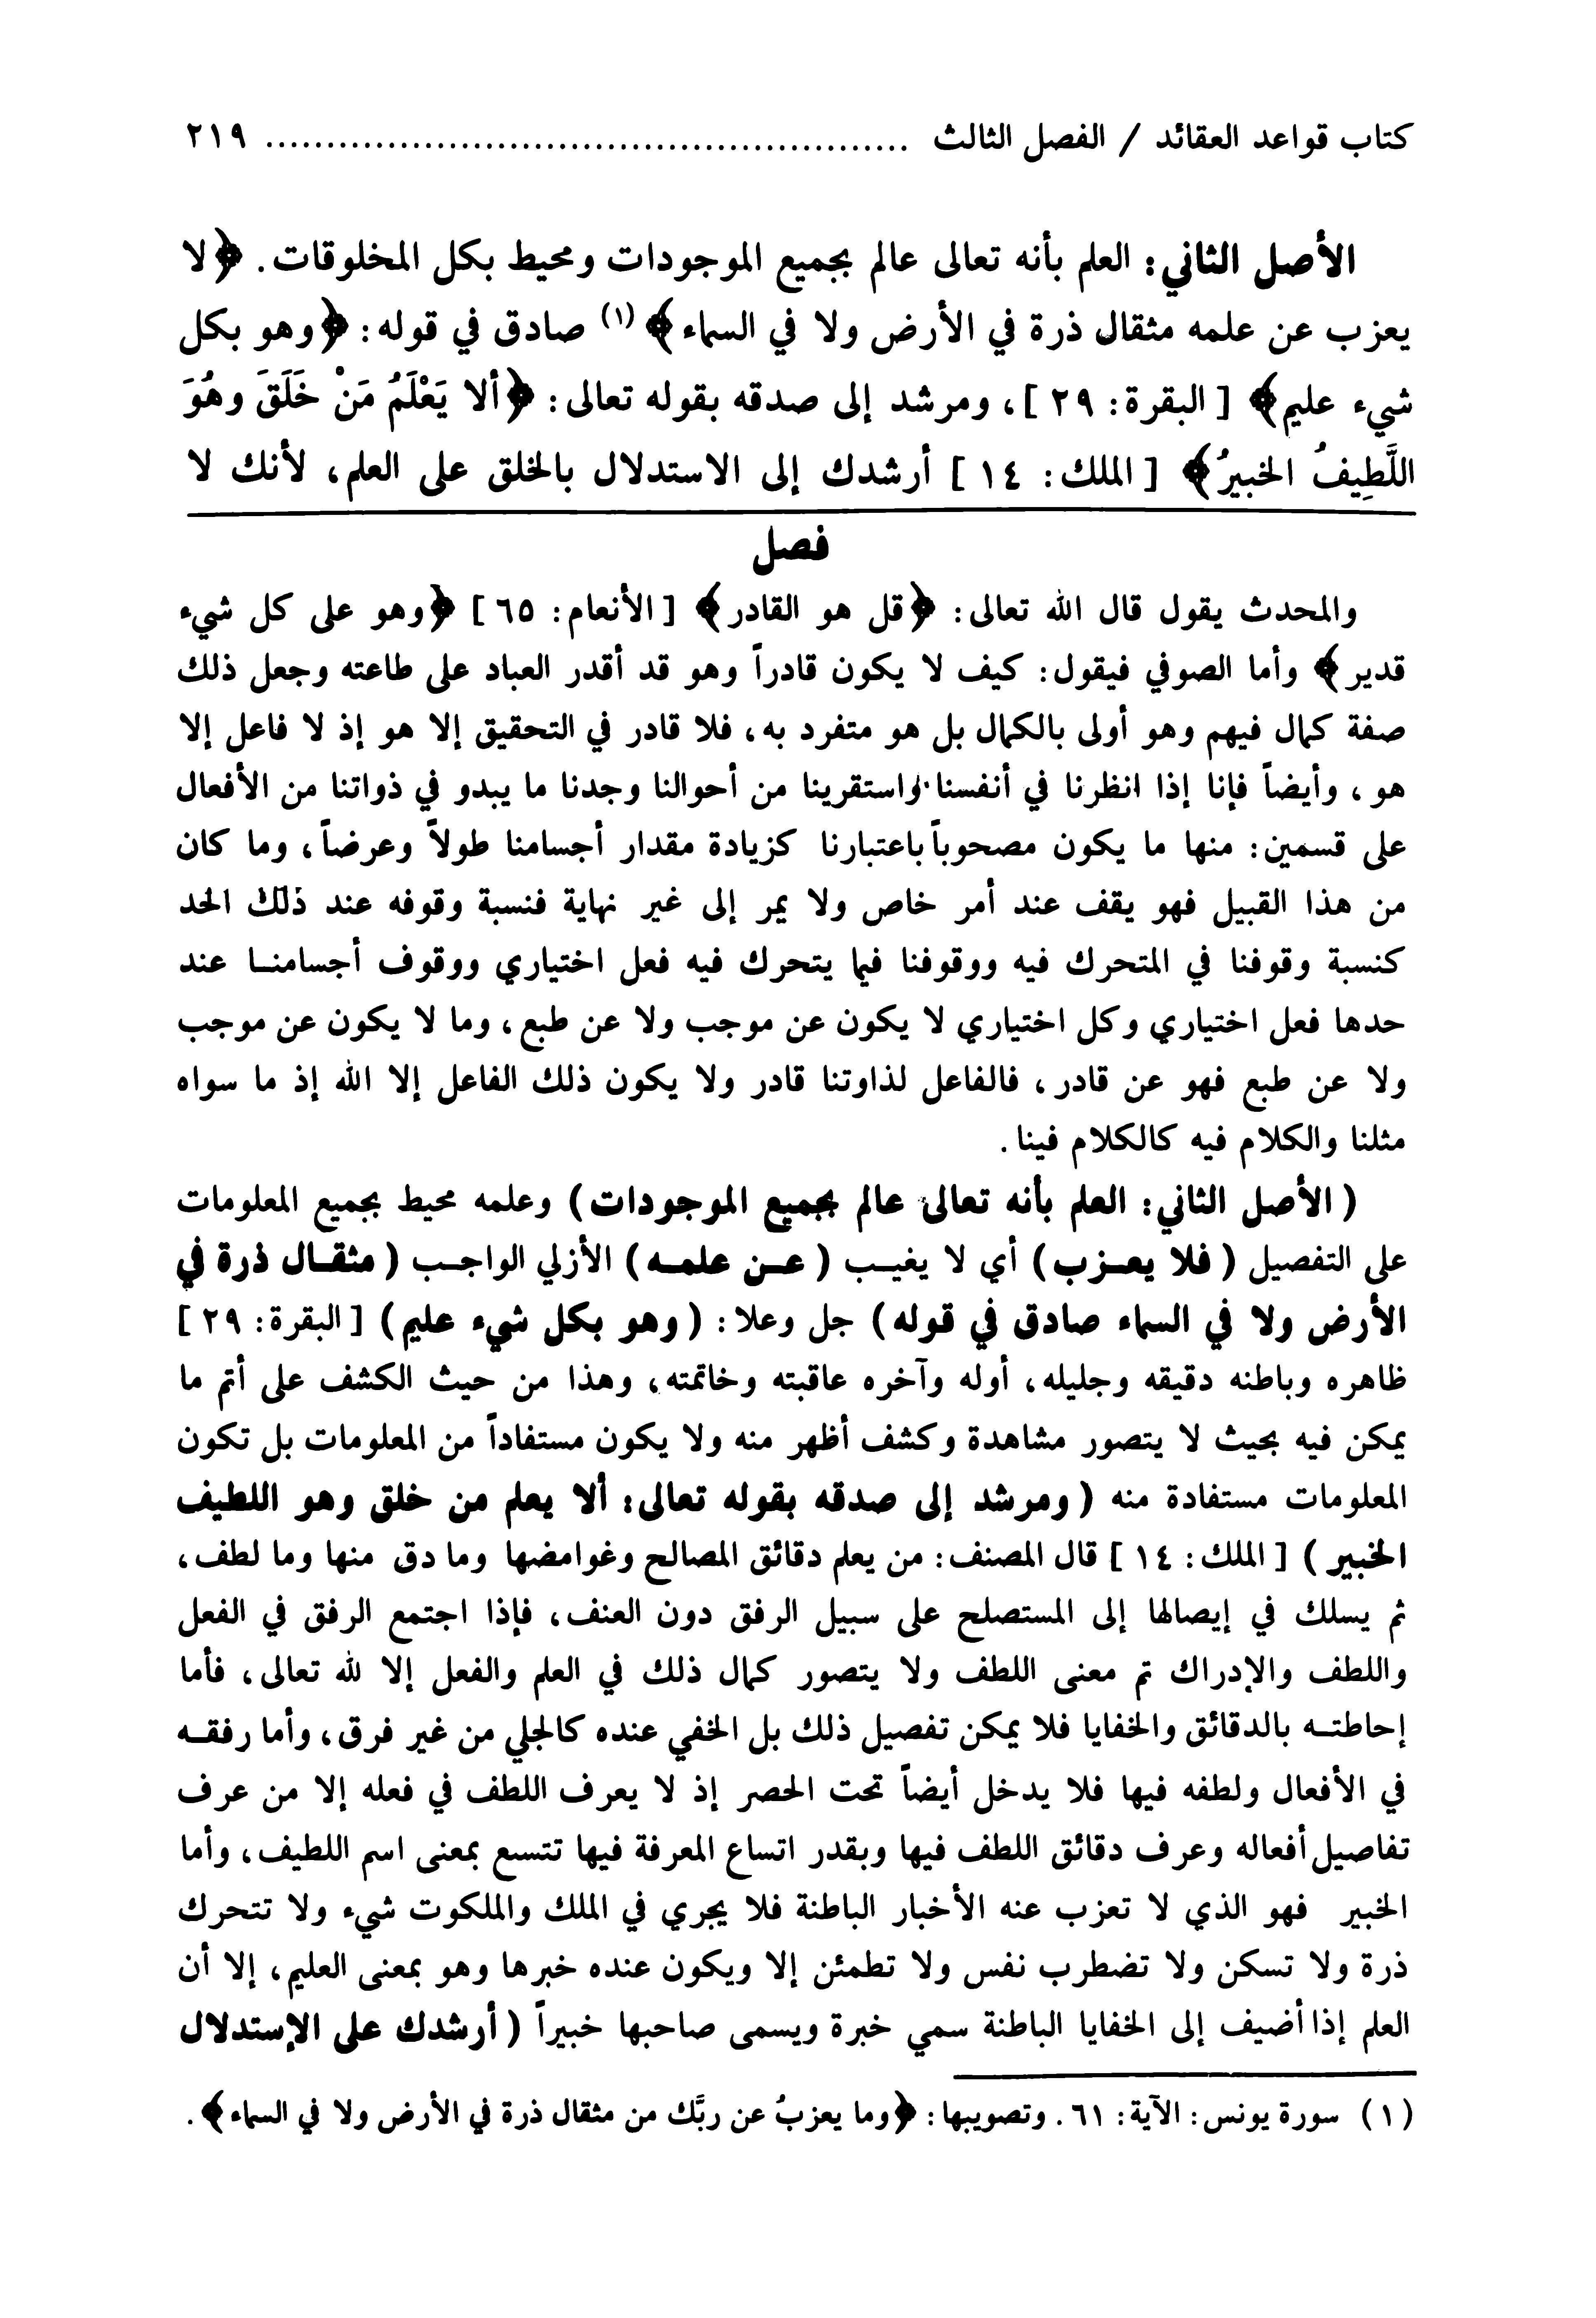 كتاب قواعد العقائد / الفصل الثالث ................................................................ ٢١٩
الأصل الثاني: العلم بأنه تعالى عالم بجميع الموجودات ومحيط بكل المخلوقات. ﴿لا
يعزب عن علمه مثقال ذرة في الأرض ولا في السماء﴾(١) صادق في قوله: ﴿وهو بكل
شيء عليم﴾ [البقرة: ٢٩]، ومرشد إلى صدقه بقوله تعالى: ﴿ألا يَعْلَمُ مَنْ خَلَقَ وهُوَ
اللَّطِيفُ الخبيرُ﴾ [الملك: ١٤] أرشدك إلى الاستدلال بالخلق على العلم، لأنك لا
فصل
والمحدث يقول قال الله تعالى: ﴿قل هو القادر﴾ [الأنعام: ٦٥] ﴿وهو على كل شيء
قدير﴾ وأما الصوفي فيقول: كيف لا يكون قادراً وهو قد أقدر العباد على طاعته وجعل ذلك
صفة كمال فيهم وهو أولى بالكمال بل هو متفرد به، فلا قادر في التحقيق إلا هو إذ لا فاعل إلا
هو، وأيضاً فإنا إذا انظرنا في أنفسنا واستقرينا من أحوالنا وجدنا ما يبدو في ذواتنا من الأفعال
على قسمين: منها ما يكون مصحوباً باعتبارنا كزيادة مقدار أجسامنا طولاً وعرضاً، وما كان
من هذا القبيل فهو يقف عند أمر خاص ولا يمر إلى غير نهاية فنسبة وقوفه عند ذلك الحد
كنسبة وقوفنا في المتحرك فيه ووقوفنا فيما يتحرك فيه فعل اختياري ووقوف أجسامنـا عند
حدها فعل اختياري وكل اختياري لا يكون عن موجب ولا عن طبع، وما لا يكون عن موجب
ولا عن طبع فهو عن قادر، فالفاعل لذاوتنا قادر ولا يكون ذلك الفاعل إلا الله إذ ما سواه
مثلنا والكلام فيه كالكلام فينا.
(الأصل الثاني: العلم بأنه تعالى عالم بجميع الموجودات) وعلمه محيط بجميع المعلومات
على التفصيل (فلا يعـزب) أي لا يغيـب (عـن علمـه) الأزلي الواجـب (مثقـال ذرة في
الأرض ولا في السماء صادق في قوله) جل وعلا: (وهو بكل شيء عليم) [البقرة: ٢٩]
ظاهره وباطنه دقيقه وجليله، أوله وآخره عاقبته وخاتمته، وهذا من حيث الكشف على أتم ما
يمكن فيه بحيث لا يتصور مشاهدة وكشف أظهر منه ولا يكون مستفاداً من المعلومات بل تكون
المعلومات مستفادة منه (ومرشد إلى صدقه بقوله تعالى: ألا يعلم من خلق وهو اللطيف
الخبير) [الملك: ١٤] قال المصنف: من يعلم دقائق المصالح وغوامضها وما دق منها وما لطف،
ثم يسلك في إيصالها إلى المستصلح على سبيل الرفق دون العنف، فإذا اجتمع الرفق في الفعل
واللطف والإدراك تم معنى اللطف ولا يتصور كمال ذلك في العلم والفعل إلا لله تعالى، فأما
إحاطتـه بالدقائق والخفايا فلا يمكن تفصيل ذلك بل الخفي عنده كالجلي من غير فرق، وأما رفقـه
في الأفعال ولطفه فيها فلا يدخل أيضاً تحت الحصر إذ لا يعرف اللطف في فعله إلا من عرف
تفاصيل أفعاله وعرف دقائق اللطف فيها وبقدر اتساع المعرفة فيها تتسع بمعنى اسم اللطيف، وأما
الخبير فهو الذي لا تعزب عنه الأخبار الباطنة فلا يجري في الملك والملكوت شيء ولا تتحرك
ذرة ولا تسكن ولا تضطرب نفس ولا تطمئن إلا ويكون عنده خبرها وهو بمعنى العليم، إلا أن
العلم إذا أضيف إلى الخفايا الباطنة سمي خبرة ويسمى صاحبها خبيراً (أرشدك على الإستدلال
(١) سورة يونس: الآية: ٦١. وتصويبها: ﴿وما يعزبُ عن ربَّك من مثقال ذرة في الأرض ولا في السماء﴾.